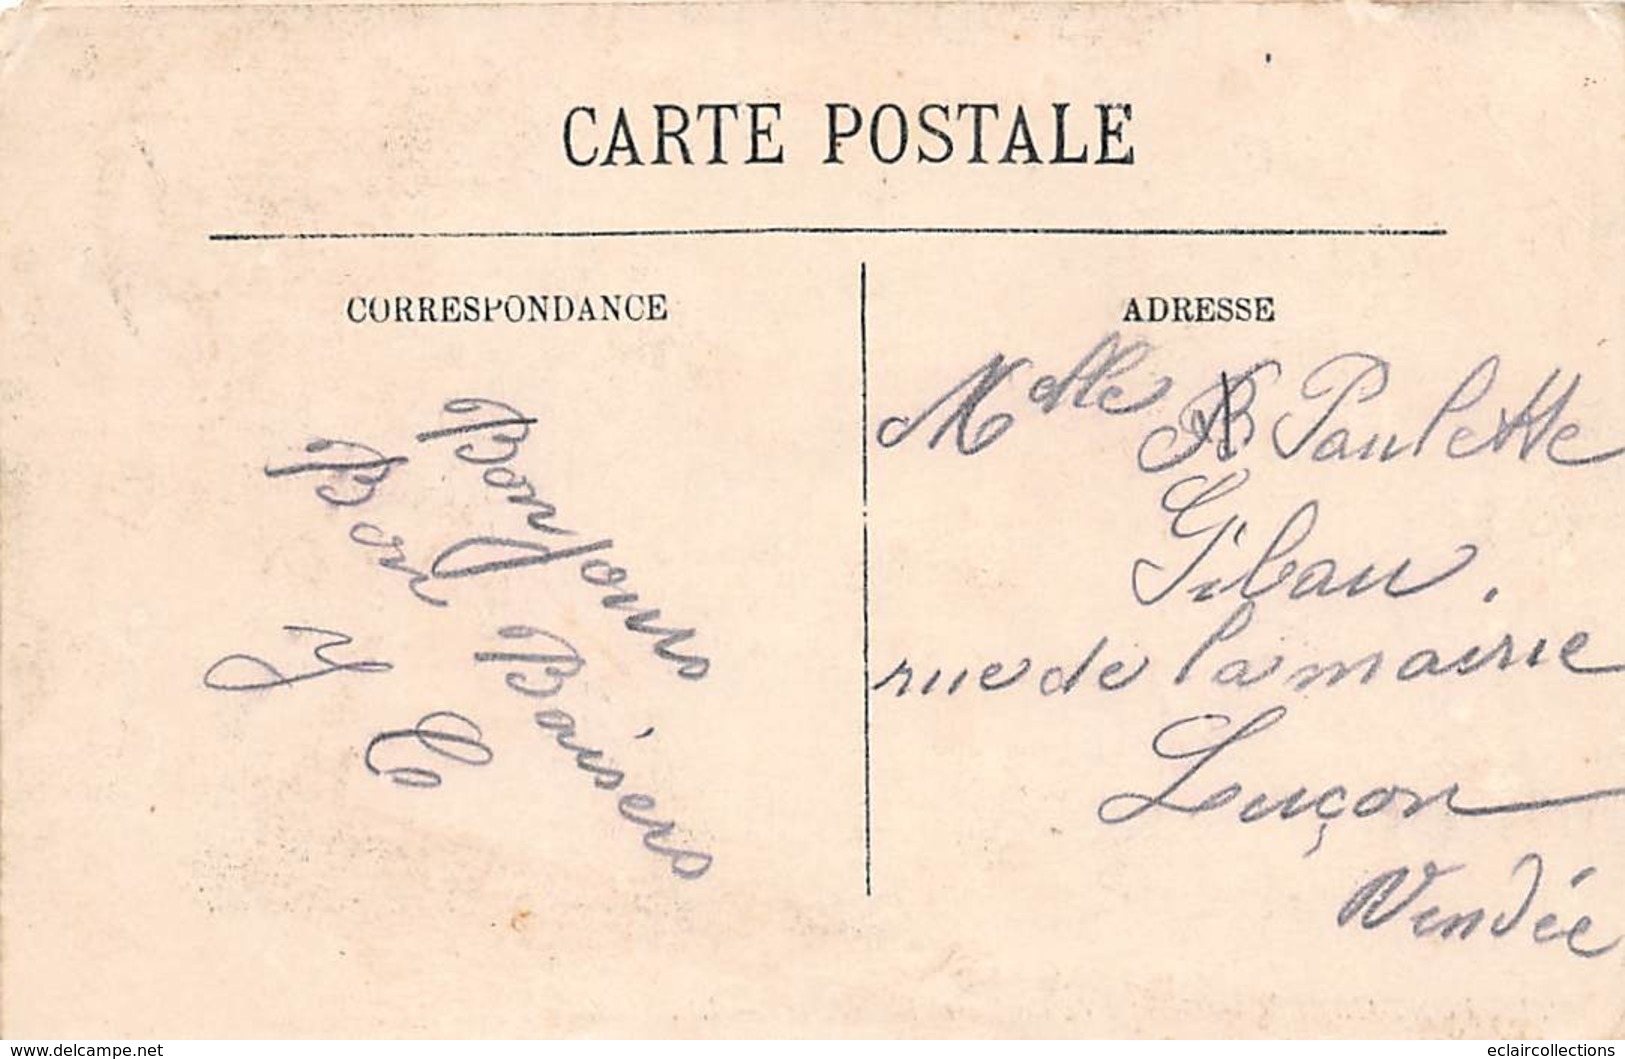 CARTE POSTALE
CORRESPONDANCE
Bonjours
Bon Baisers
Y C
ADRESSE
Melle Paulette
Gibau.
rue de la mairie
Luçon
Vendée
www.delcampe.net
eclaircollections